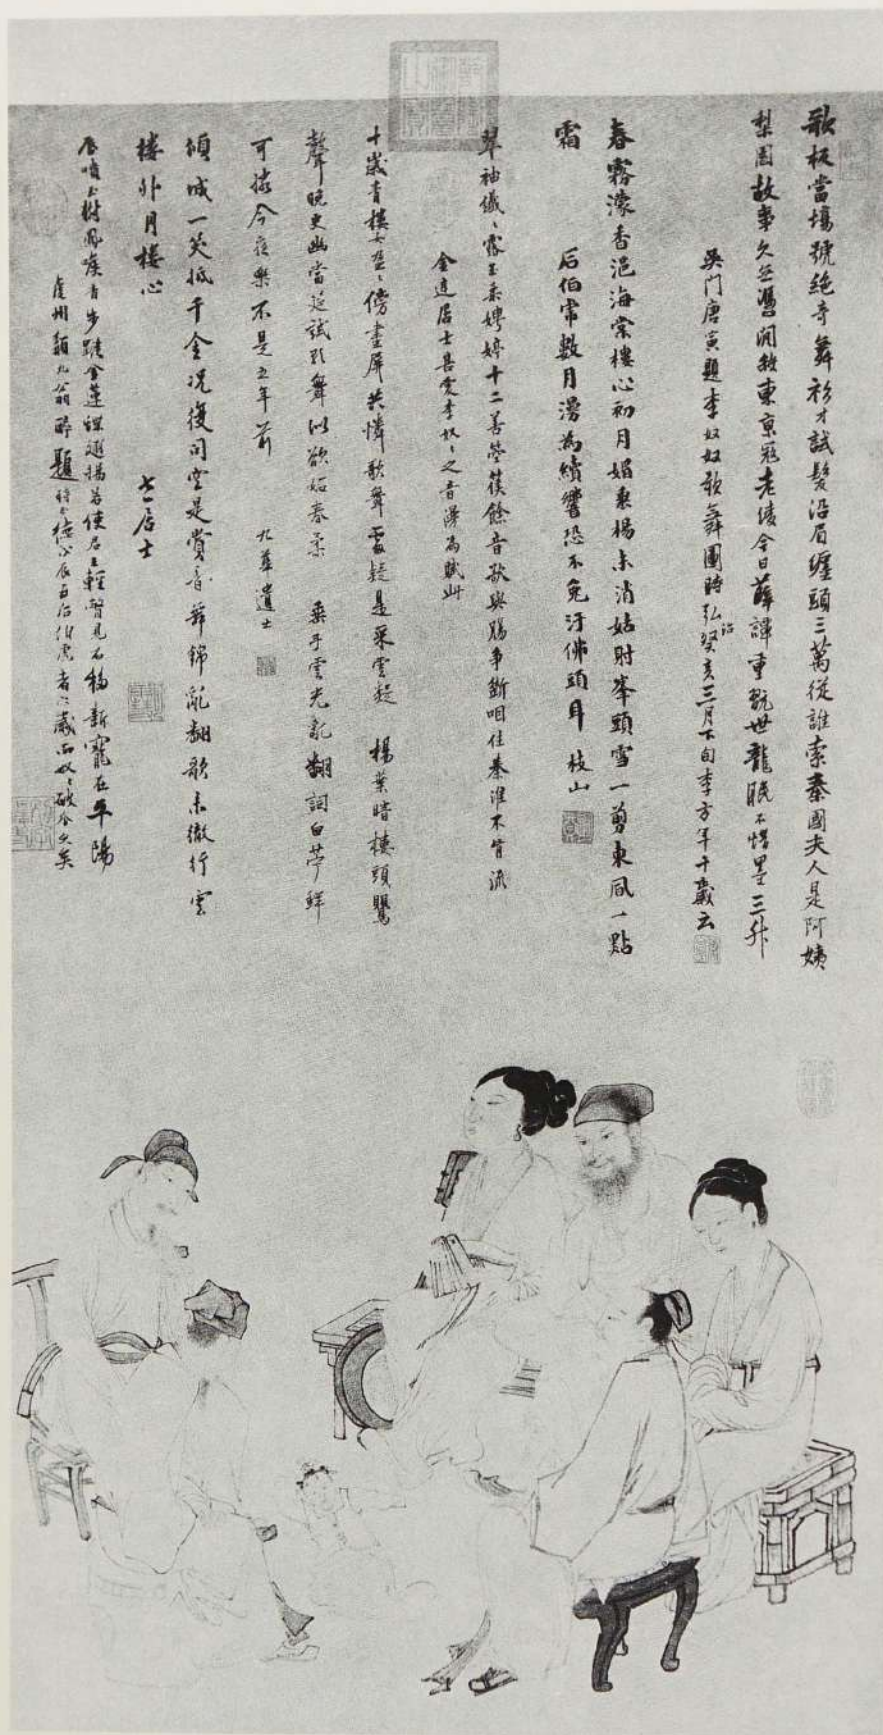 歌板當場號絶奇舞衫才試髮沿眉纏頭三萬從誰索秦國夫人是阿姨
梨園故事久無憑閒敘東京寇老綾今日薛譚重翫世龍眠不惜墨三升
吳門唐寅題李奴奴歌舞圖時弘治癸亥三月下旬李方年十歲云
春霧濛香浥海棠樓心初月媚垂楊未消姑射峯頭雪一剪東風一點
霜
后伯常數月漫為續響恐不免汙佛頭耳 枝山
翠袖儀儀露玉柔娉婷十二善箜篌餘音欲與鶯爭斷咽住秦淮不肯流
金連居士喜愛李奴奴之音漫為賦此
十歲青樓女盈盈傍畫屏共憐歌舞處疑是采雲凝 楊葉暗樓頭鶯
聲曉更幽當筵試引舞似欲妬春柔 垂手雲光亂翻詞白苧鮮
可憐今夜樂不是五年前 九華遺士
傾城一笑抵千金况復同雲是賞音舞錦亂翻歌未徹行雲
樓外月樓心
七一居士
唇噴玉樹鳳喉青步蹴金蓮
新寵在平陽
虔州 九翁 醉題